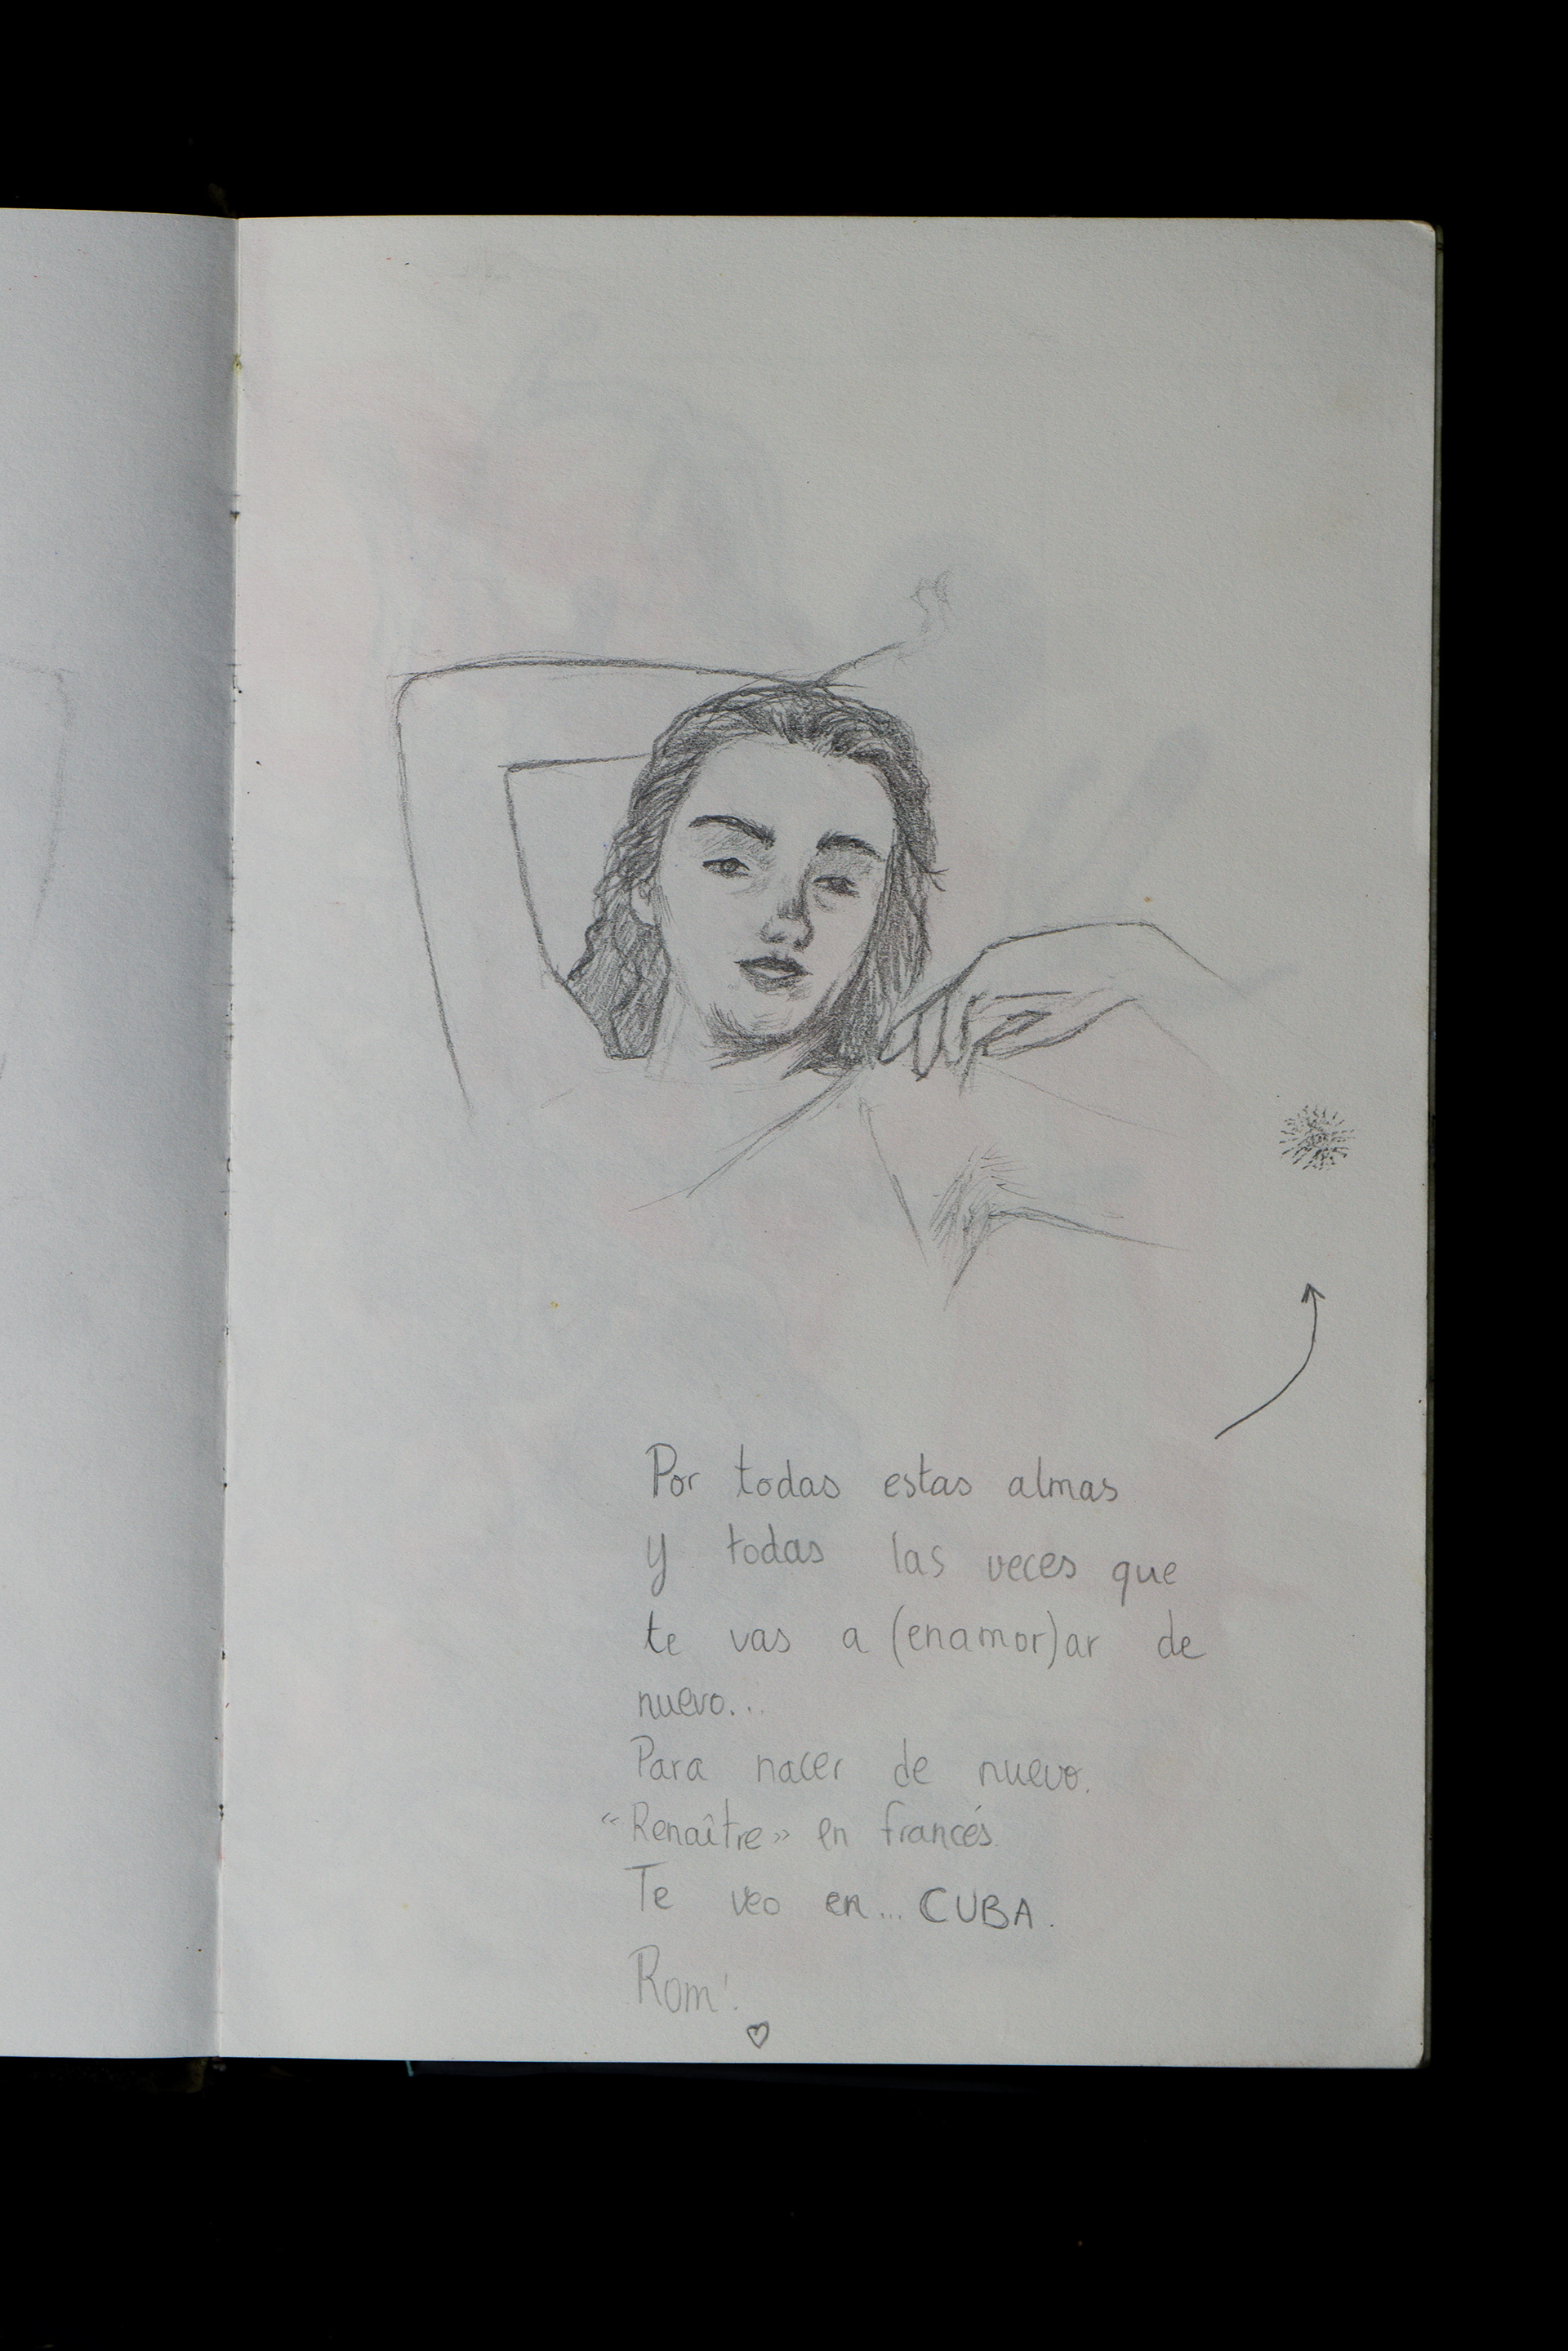 Por todas estas almas
y todas las veces que
te vas a (enamor)ar de
nuevo...
Para nacer de nuevo.
"Renaître" en francés
Te veo en... CUBA.
Rom'.